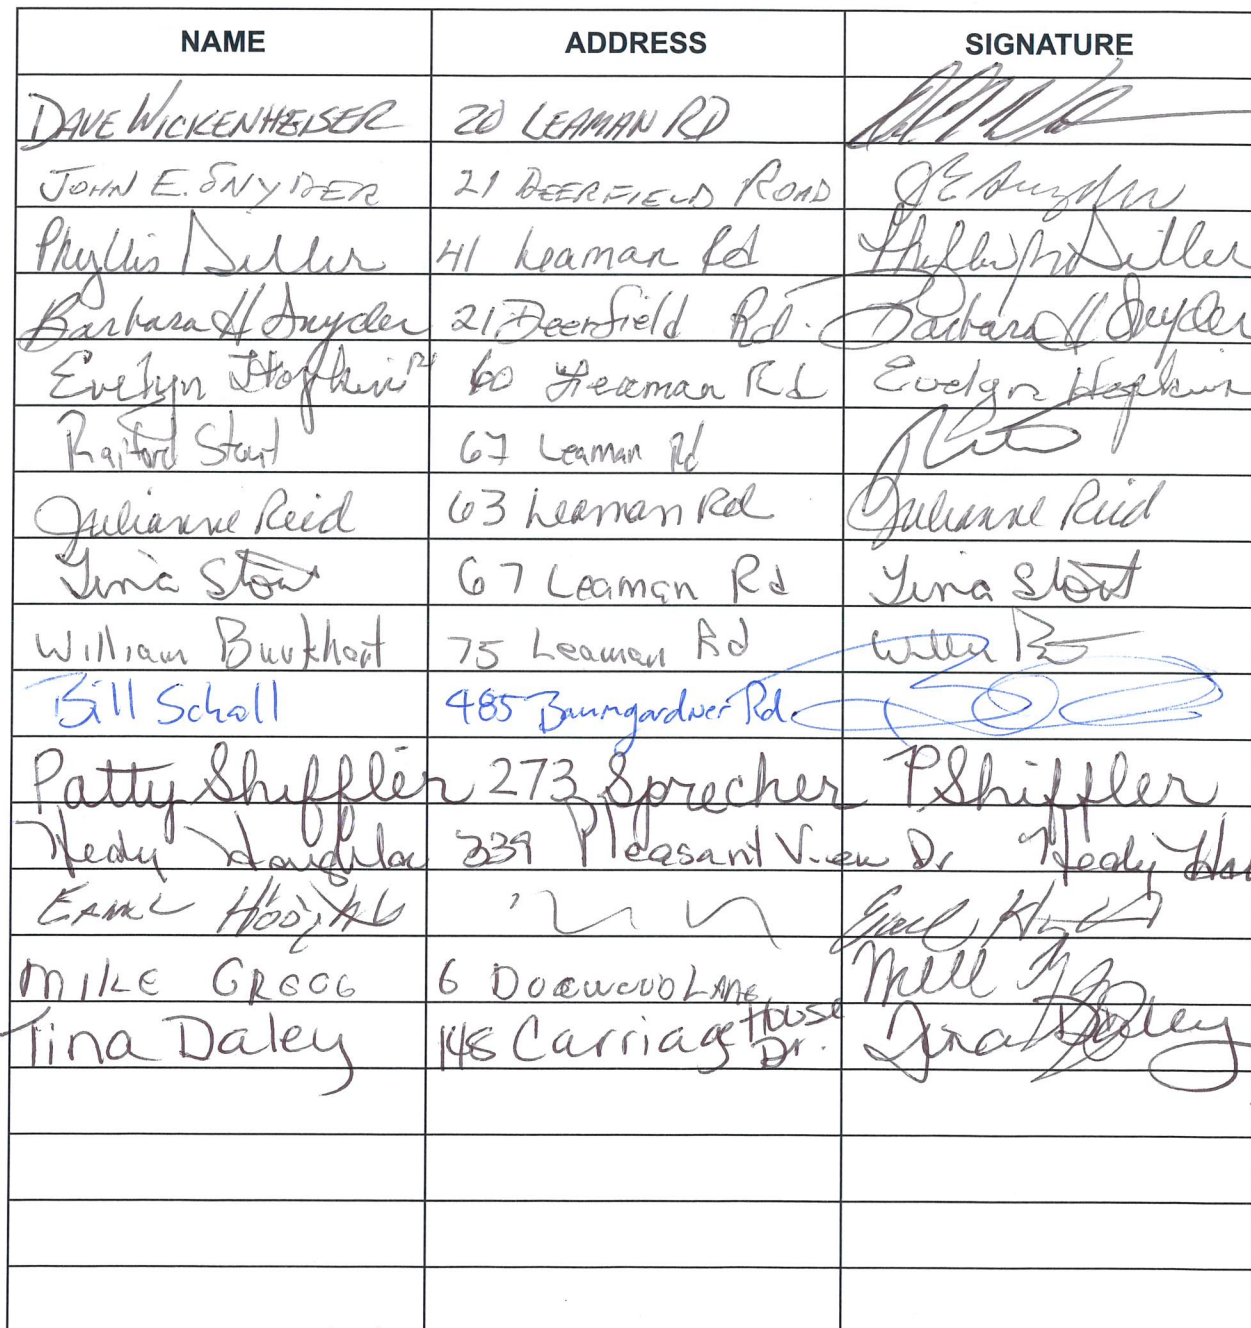 NAME ADDRESS SIGNATURE
DAVE WICKENHEISER 20 LEAMAN RD
JOHN E. SNYDER 21 DEERFIELD ROAD JE Snyder
Phyllis Diller 41 Leaman Rd Phyllis Diller
Barbara H Snyder 21 Deerfield Rd. Barbara H Snyder
Evelyn Hopkins 60 Leaman Rd Evelyn Hopkins
Raiford Stout 67 Leaman Rd
Julianne Reid 63 Leaman Rd Julianne Reid
Tina Stout 67 Leaman Rd Tina Stout
William Burkhart 75 Leaman Rd
Bill Scholl 485 Baumgardner Rd.
Patty Shiffler 273 Sprecher P Shiffler
Hedy 339 Pleasant View Dr Hedy
MIKE GREGG 6 DOGWOOD LANE
Tina Daley 148 Carriage House Dr. Tina Daley